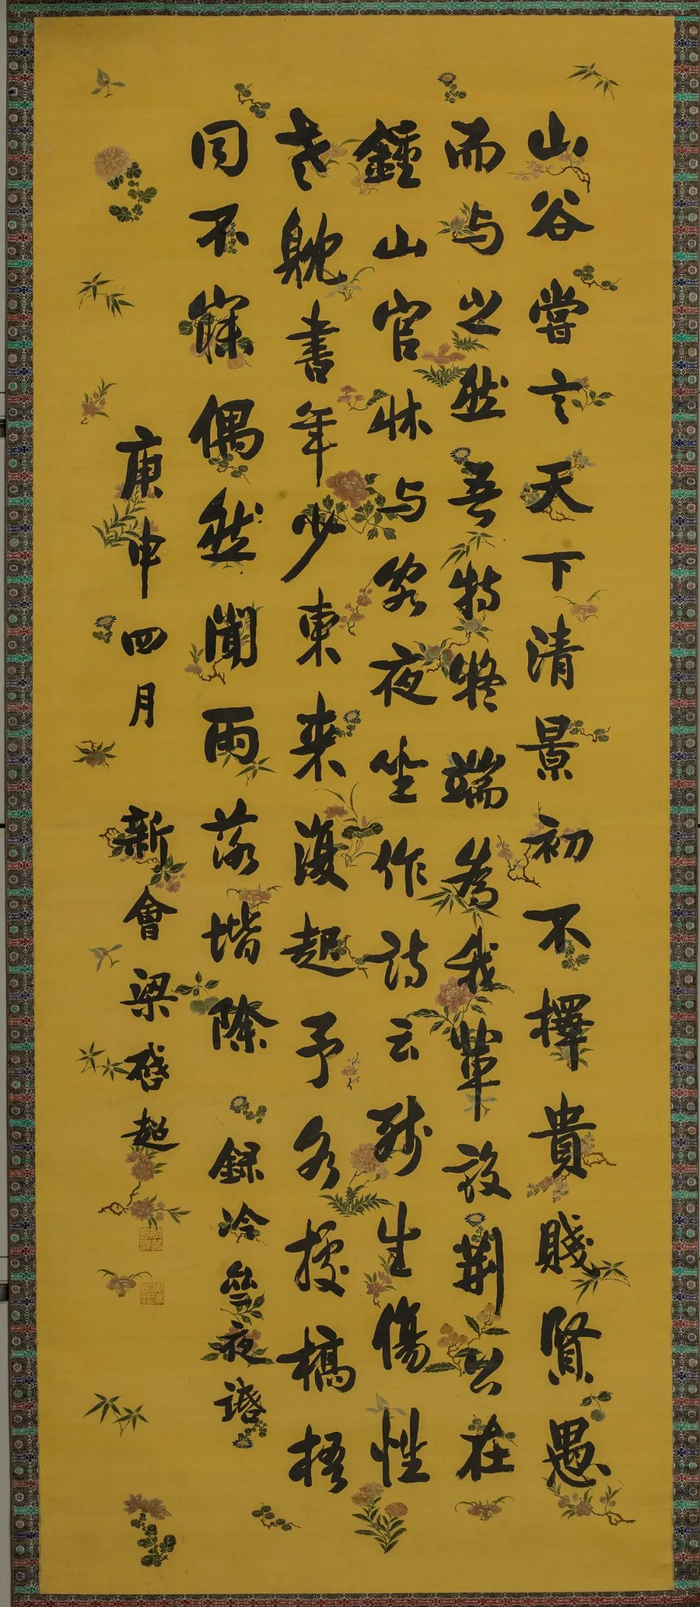 山谷嘗言天下清景初不擇貴賤賢愚
而与之然吾特疑端為我輩設荆公在
鍾山官休与客夜坐作詩云殘生傷性
老躭書年少東来復起予各據槁梧
同不寐偶然聞雨落堦除 録冷斋夜話
庚申四月 新會梁啓超